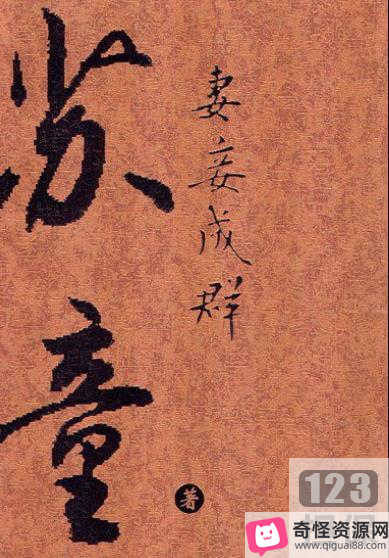 苏童
妻妾成群
著
123
奇怪资源网
www.qiguai88.com